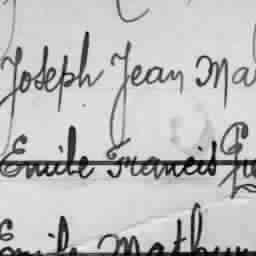 Joseph Jean Ma
Emile Francis Gu
Emile Mathur